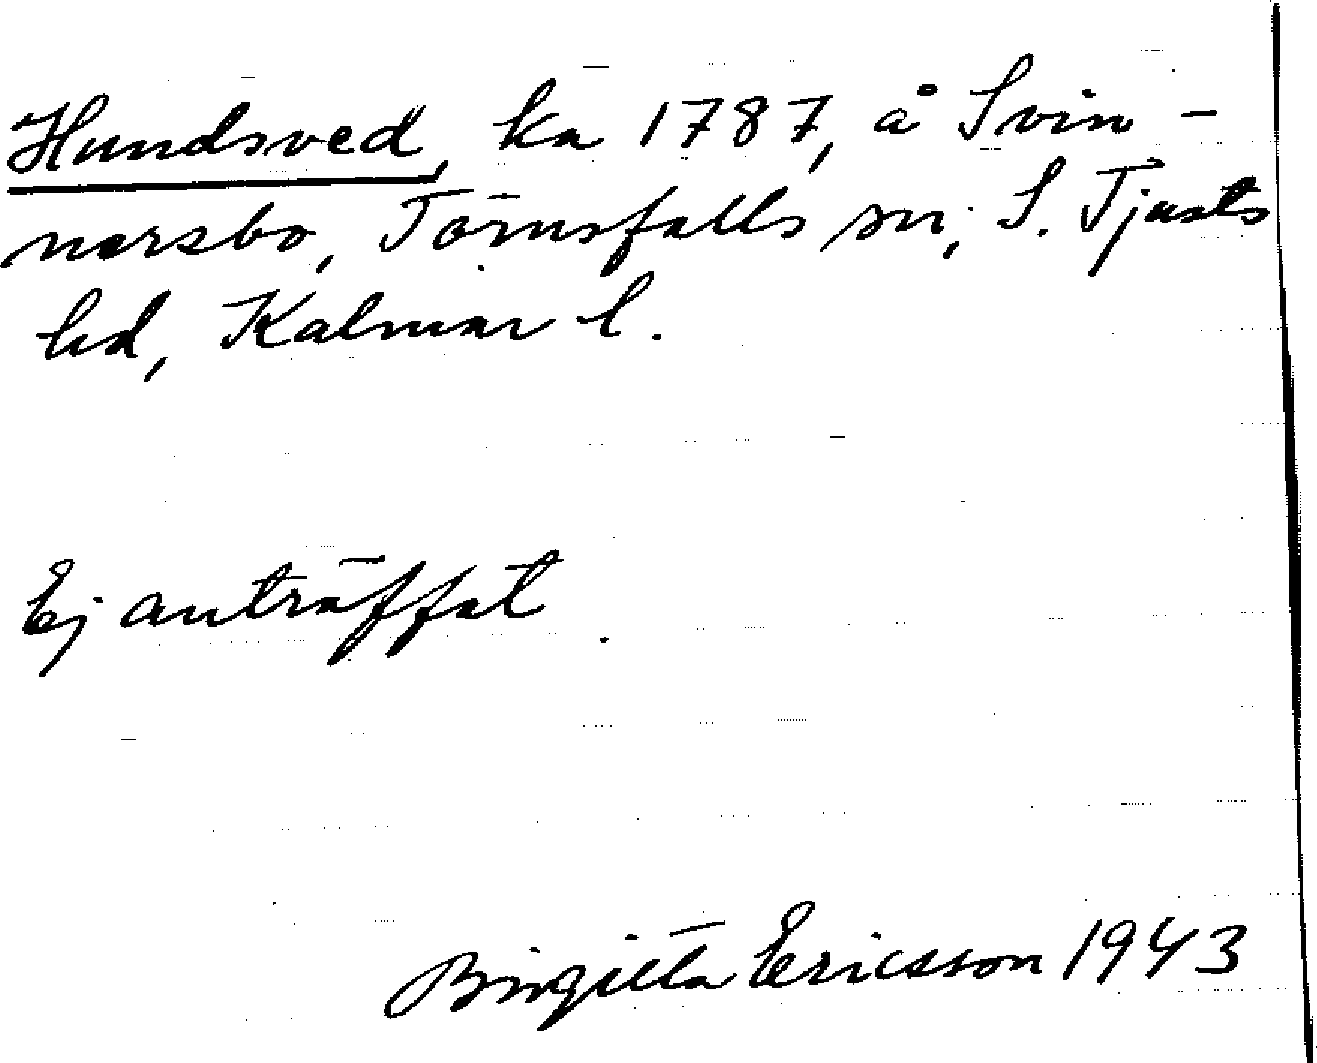 Hundsved, ka 1787, å Svin-
narsbo, Törnsfalls sn, S. Tjusts
hd, Kalmar l.
Ej anträffat.
Birgitta Ericsson 1943